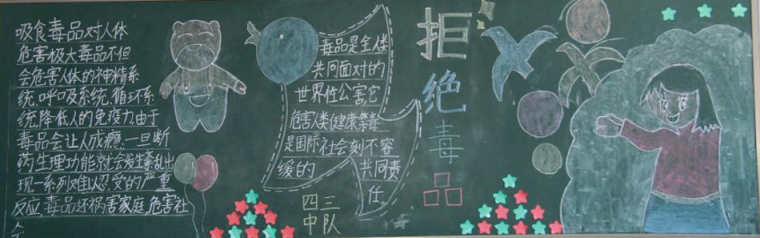 吸食毒品对人体
危害极大毒品不但
会危害人体的神精系
统、呼吸系统、循环系
统降低人的免疫力由于
毒品会让人成瘾,一旦断
药生理功能就会发生紊乱出
现一系列难以忍受的严重
反应,毒品还祸害家庭危害社
会
毒品是全人类
共同面对的
世界性公害它
危害人类健康禁毒
是国际社会刻不容
缓的 共同责
任
四三
中队
拒绝毒品